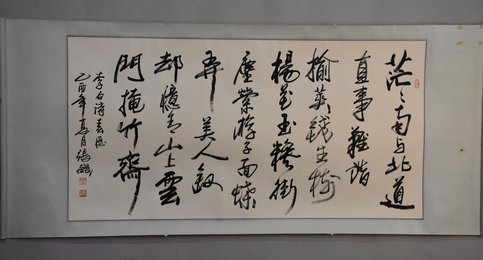 茫々南与北道
直事難諧
榆荚錢生樹
楊花玉糝街
塵縈游子面蝶
弄美人釵
却憶青山上雲
門掩竹齋
李白诗春感
乙酉年夏月